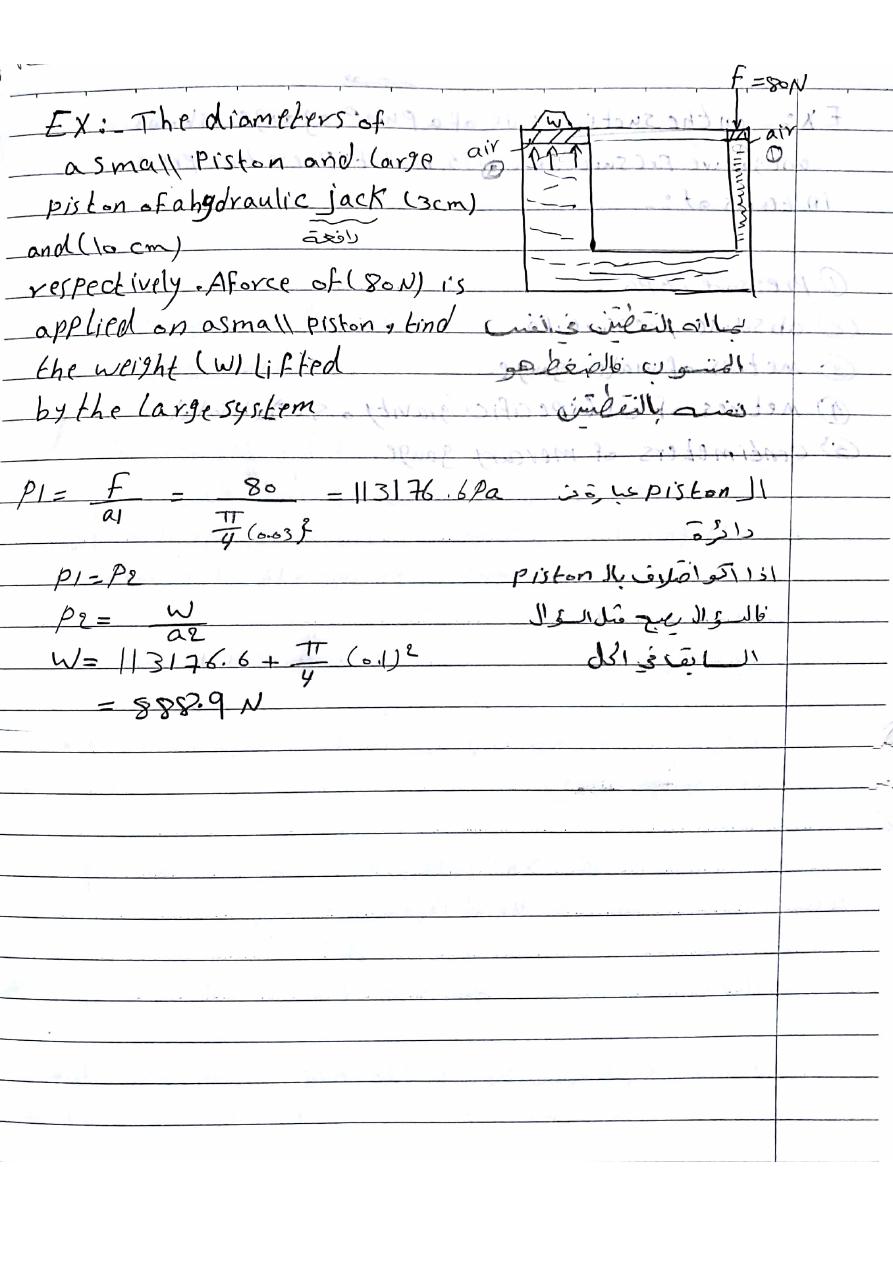 EX:- The diameters of
a small Piston and large
piston of a hydraulic jack (3cm)
رافعة
and (10 cm)
respectively. A force of (80N) is
applied on a small piston, find
the weight (W) Lifted
by the large system
F = 80N
W
air
2
air
1
بما انه النقطتين في نفس
المنسوب فالضغط هو
نفسه بالنقطتين
P1 = F/a1 = 80/(π/4 (0.03)²) = 113176.6 Pa
P1 = P2
P2 = W/a2
W = 113176.6 + π/4 (0.1)²
= 888.9 N
الـ piston عبارة عن
دائرة
اذا اكو اختلاف بالـ piston
فالسؤال يصبح مثل السؤال
السابق في الحل